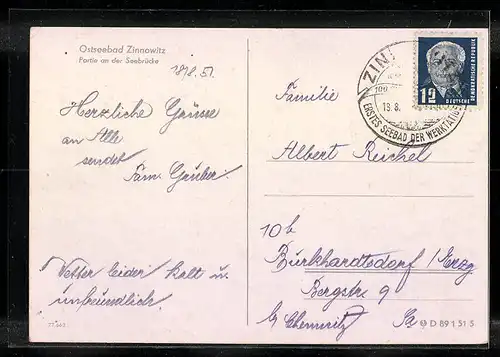 Ostseebad Zinnowitz
Partie an der Seebrücke
18/8. 51.
Herzliche Grüsse
an Alle
sendet
Fam. Gruber.
Wetter leider kalt u.
unfreundlich.
ZIN
18.8.
ERSTES SEEBAD DER WERKTÄTI
12
DEUTSCHE
DEMOKRATISCHE REPUBLIK
Familie
Albert Reichel
10b
Burkhardtsdorf / Erzg
Bergstr 9
b/ Chemnitz Sa
D 89 1 51 S